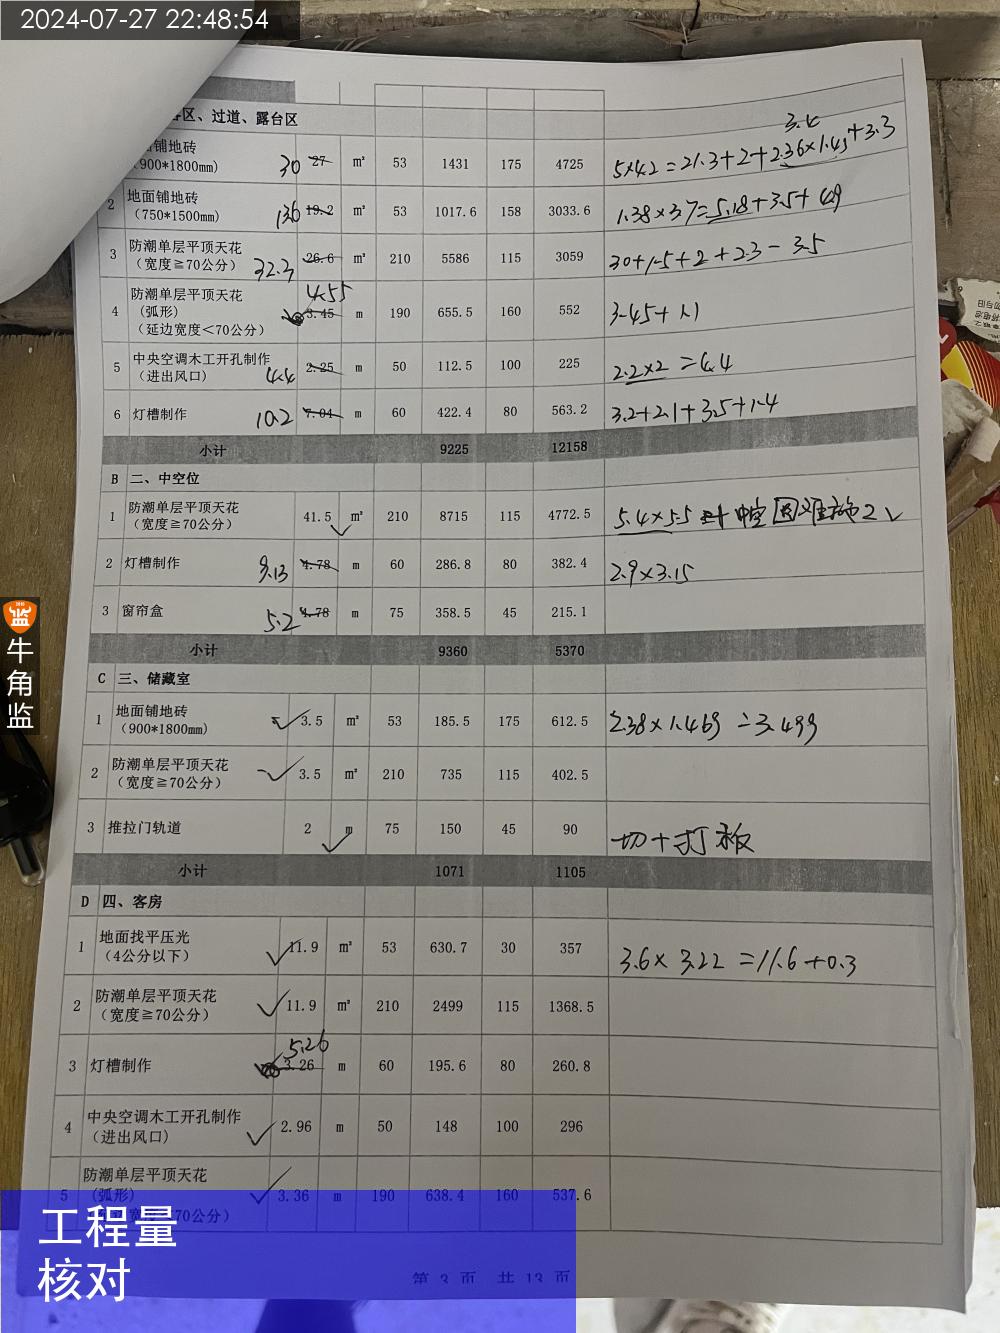 2024-07-27 22:48:54
区、过道、露台区
铺地砖 30 27 m² 53 1431 175 4725 5×4.2=21.3+2+2.36×1.43+3.3 3.4
900*1800mm)
2 地面铺地砖 19.2 m² 53 1017.6 158 3033.6 1.38×3.7=5.18+3.5+4.9
（750*1500mm） 13.6
3 防潮单层平顶天花 26.6 m² 210 5586 115 3059 30+1.5+2+2.3-3.5
（宽度≧70公分） 32.3
4 防潮单层平顶天花 4.55 3.45 m 190 655.5 160 552 3.45+1.1
（弧形）
（延边宽度<70公分）
5 中央空调木工开孔制作 2.25 m 50 112.5 100 225 2.2×2=4.4
（进出风口） 4.4
6 灯槽制作 10.2 7.04 m 60 422.4 80 563.2 3.2+2.1+3.5+1.4
小计 9225 12158
B 二、中空位
1 防潮单层平顶天花 41.5 m² 210 8715 115 4772.5 5.4×5.5
（宽度≧70公分）
2 灯槽制作 9.13 4.78 m 60 286.8 80 382.4 2.9×3.15
3 窗帘盒 5.2 4.78 m 75 358.5 45 215.1
小计 9360 5370
C 三、储藏室
1 地面铺地砖 3.5 m² 53 185.5 175 612.5 2.38×1.469=3.499
（900*1800mm）
2 防潮单层平顶天花 3.5 m² 210 735 115 402.5
（宽度≧70公分）
3 推拉门轨道 2 m 75 150 45 90 切+打板
小计 1071 1105
D 四、客房
1 地面找平压光 11.9 m² 53 630.7 30 357 3.6×3.22=11.6+0.3
（4公分以下）
2 防潮单层平顶天花 11.9 m² 210 2499 115 1368.5
（宽度≧70公分）
3 灯槽制作 5.26 3.26 m 60 195.6 80 260.8
4 中央空调木工开孔制作 2.96 m 50 148 100 296
（进出风口）
5 防潮单层平顶天花 3.36 m 190 638.4 160 537.6
（弧形）
70公分）
第 3 页 共 13 页
牛角监
工程量
核对